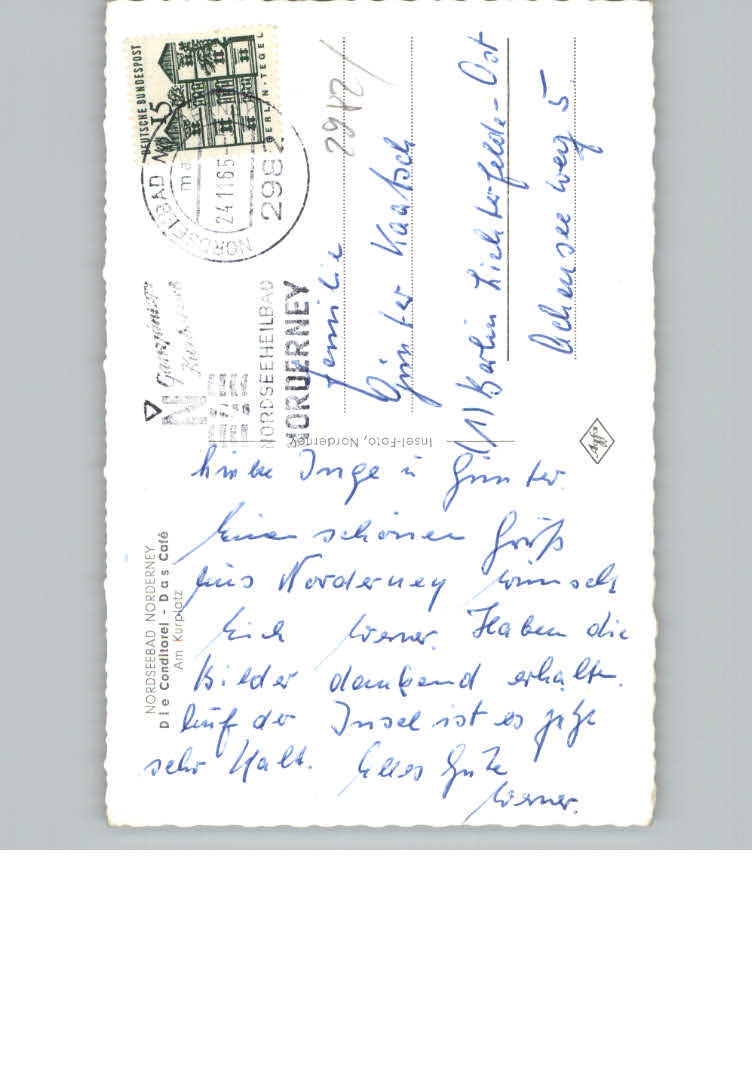 NORDSEEBAD NORDERNEY
Die Conditorei - Das Café
Am Kurplatz
Liebe Inge u Günter.
Einen schönen Gruß
aus Norderney wünscht
Euch Werner. Haben die
Bilder dankend erhalten.
Auf der Insel ist es jetzt
sehr kalt. Alles Gute
Werner.
Insel-Foto, Norderney
Agfa
DEUTSCHE BUNDESPOST
15
BERLIN-TEGEL
NORDSEEBAD
24.11.65-
2982
NORDSEEHEILBAD
NORDERNEY
2982/
Familie
Günter Kaatsch
(1) Berlin Lichterfelde-Ost
Achenseeweg 5